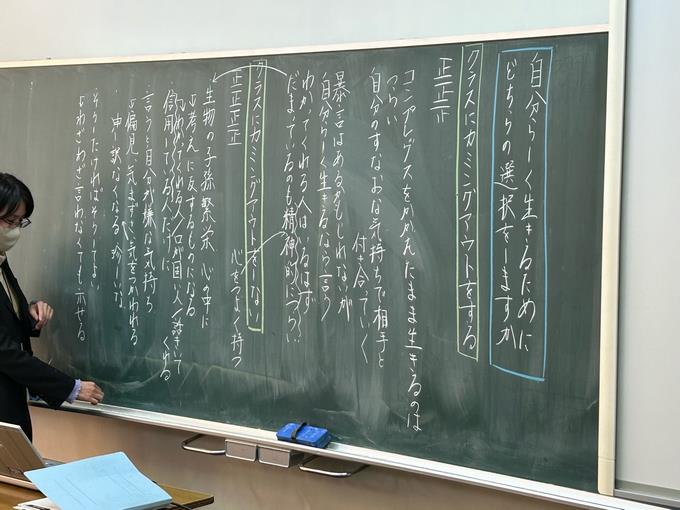 自分らしく生きるために
どちらの選択をしますか
クラスにカミングアウトをする
正正正
コンプレックスをかかえたまま生きるのは
つらい
自分のすなおな気持ちで相手と
付き合っていく
暴言はあるかもしれないが
自分らしく生きるなら言う
わかってくれる人はいるはず
だまっているのも精神的につらい
クラスにカミングアウトをしない
正正正正
心をつよく持つ
生物の子孫繁栄 心の中に
考えに反するものになる
いわれてくれる人/口が固い人/話きいて
くれる
信用している人だけに
言うと自分が嫌な気持ち
偏見 気まずい 気をつかわれる
申し訳なくなる 珍しいな
そうしたければそうしてよい
わざわざ言わなくても示せる